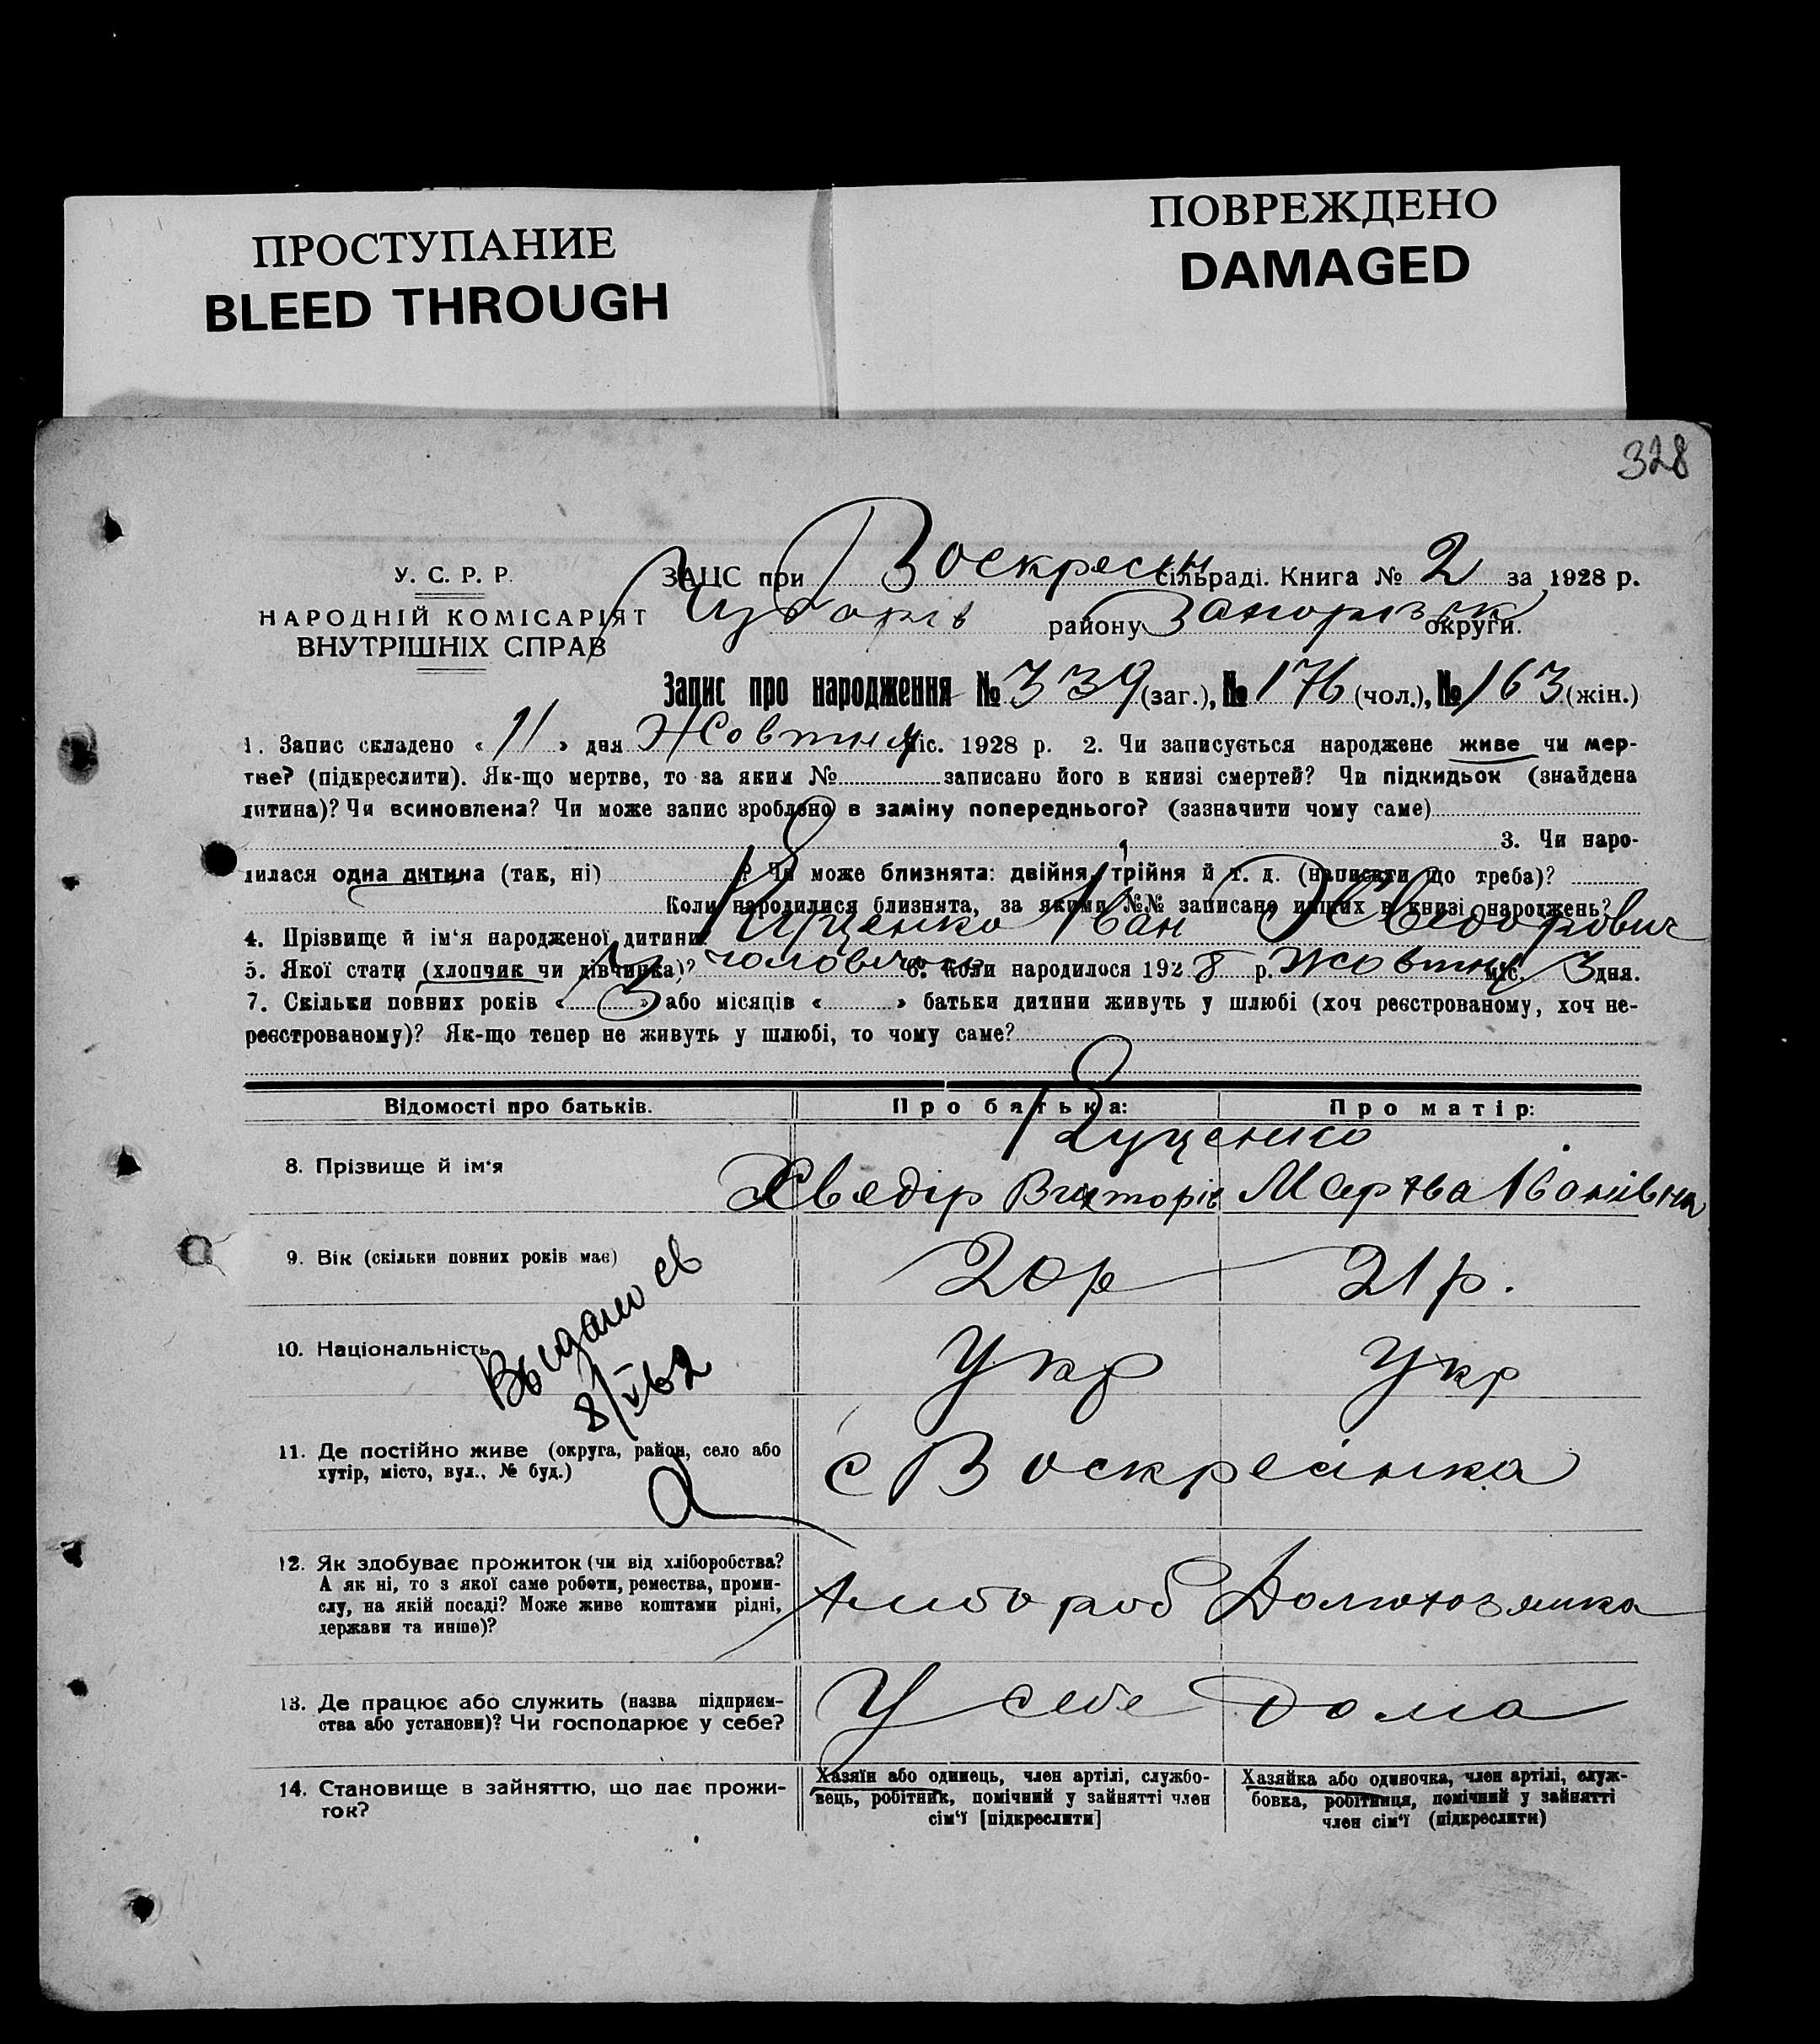 ПРОСТУПАНИЕ
BLEED THROUGH
ПОВРЕЖДЕНО
DAMAGED
328
У. С. Р. Р.
НАРОДНІЙ КОМІСАРІЯТ
ВНУТРІШНІХ СПРАВ
ЗАЦС при Воскресен сільраді. Книга № 2 за 1928 р.
району Запорізьк округи.
Запис про народження № 339 (заг.), № 176 (чол.), № 163 (жін.)
1. Запис складено « 11 » дня Жовтня міс. 1928 р. 2. Чи записується народжене живе чи мер-
тве? (підкреслити). Як-що мертве, то за яким № записано його в книзі смертей? Чи підкидьок (знайдена
дитина)? Чи всиновлена? Чи може запис зроблено в заміну попереднього? (зазначити чому саме)
3. Чи наро-
дилася одна дитина (так, ні) ? Чи може близнята: двійня, трійня й т. д. (написати що треба)?
Коли народилися близнята, за якими №№ записано инших в книзі народжень?
4. Прізвище й ім'я народженої дитини: Куценко Іван Хведорович
5. Якої стати (хлопчик чи дівчинка)? чоловічої 6. Коли народилося 1928 р. Жовтня міс. 3 дня.
7. Скільки повних років « 3 » або місяців « » батьки дитини живуть у шлюбі (хоч реєстрованому, хоч не-
реєстрованому)? Як-що тепер не живуть у шлюбі, то чому саме?
Відомості про батьків. Про батька: Про матір:
Куценко
8. Прізвище й ім'я Хведір Вікторів Марфа Іванівна
9. Вік (скільки повних років має) 20 р 21 р.
10. Національність Укр Укр
Выдано св
8/VI 62
11. Де постійно живе (округа, район, село або
хутір, місто, вул., № буд.) с Воскресінка
12. Як здобуває прожиток (чи від хліборобства?
А як ні, то з якої саме роботи, ремества, проми-
слу, на якій посаді? Може живе коштами рідні,
держави та инше)? Хлібороб Домохозяика
13. Де працює або служить (назва підприєм-
ства або установи)? Чи господарює у себе? У себе дома
14. Становище в зайняттю, що дає прожи-
ток?
Хазяїн або одинець, член артілі, службо-
вець, робітник, помічний у зайнятті член
сім'ї [підкреслити]
Хазяйка або одиночка, член артілі, служ-
бовка, робітниця, помічний у зайнятті
член сім'ї (підкреслити)